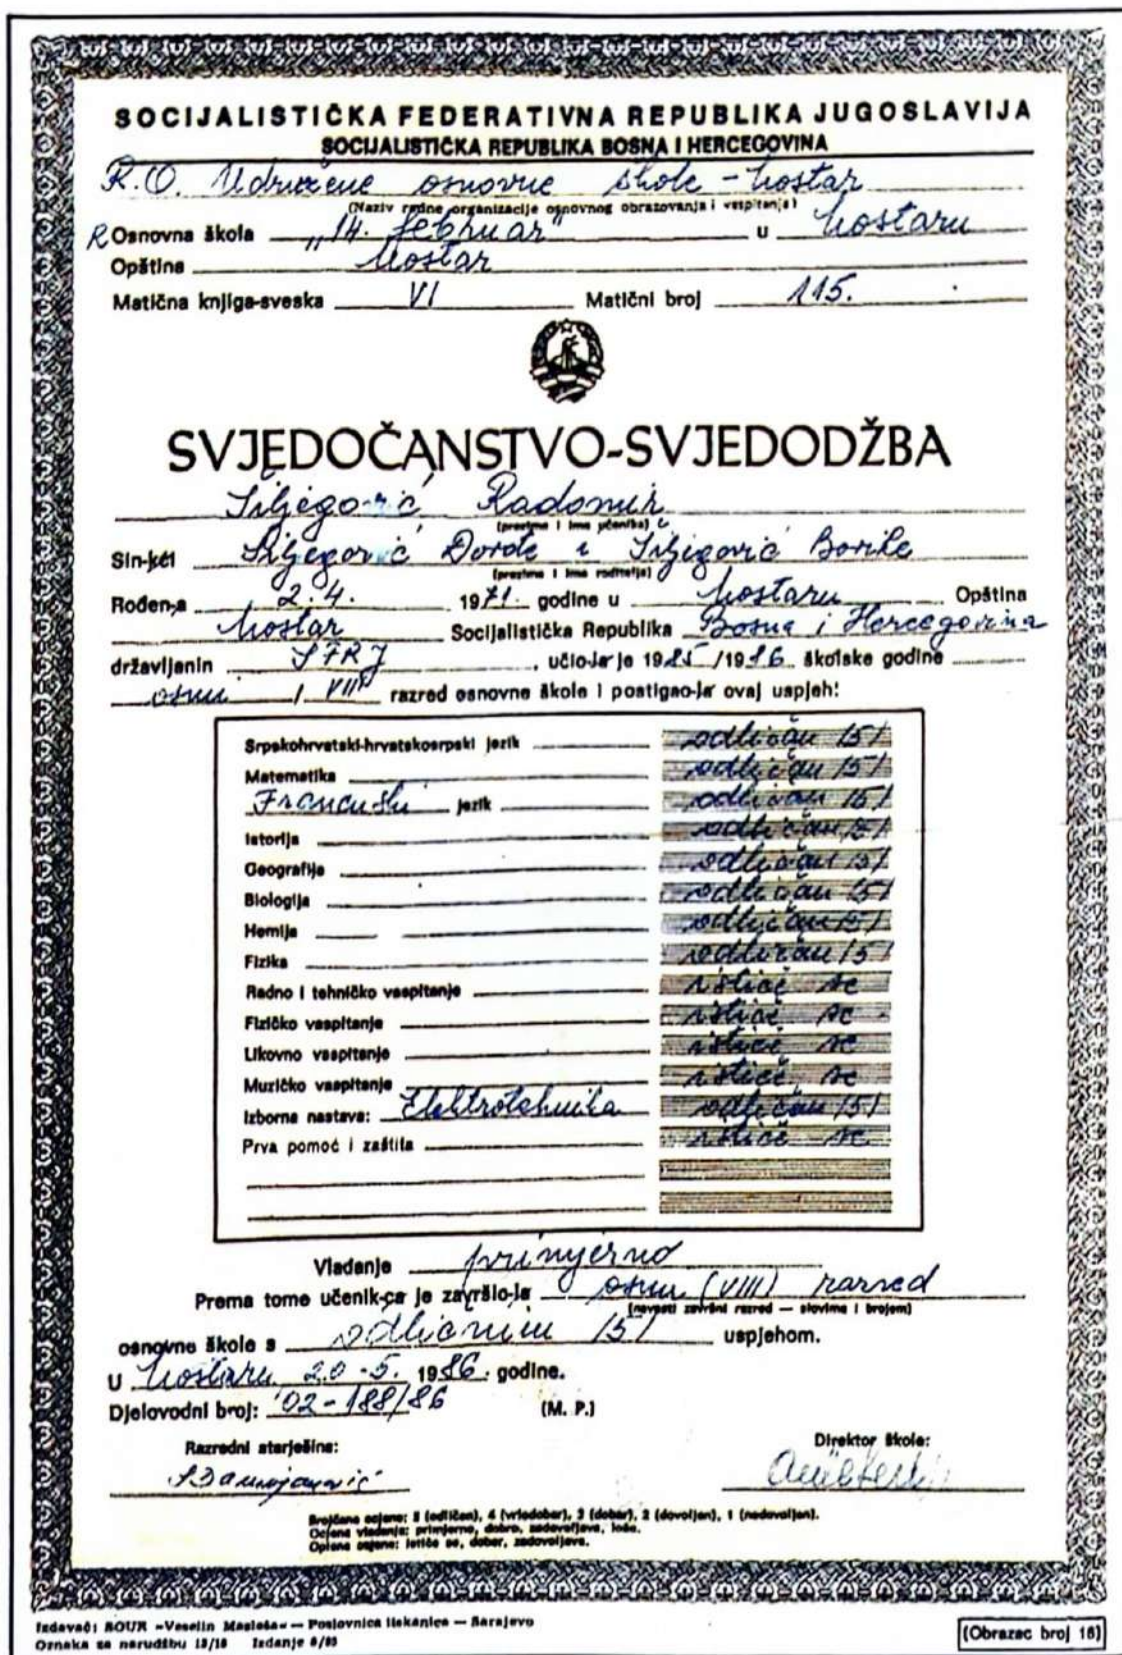 SOCIJALISTIČKA FEDERATIVNA REPUBLIKA JUGOSLAVIJA
SOCIJALISTIČKA REPUBLIKA BOSNA I HERCEGOVINA
R.O. Udružene osnovne škole - Mostar
(Naziv radne organizacije osnovnog obrazovanja i vaspitanja)
R Osnovna škola „14. februar" u Mostaru
Opština Mostar
Matična knjiga-sveska VI Matični broj 115.
SVJEDOČANSTVO-SVJEDODŽBA
Siljegović Radomir
(prezime i ime učenika)
Sin-kći Siljegović Đorđe i Siljegović Borike
(prezime i ime roditelja)
Rođen-a 2.4. 1971. godine u Mostaru Opština
Mostar Socijalistička Republika Bosna i Hercegovina
državljanin SFRJ, učio-la je 1985/1986 školske godine
osmi / VIII razred osnovne škole i postigao-la ovaj uspjeh:
Srpskohrvatski-hrvatskosrpski jezik odličan /5/
Matematika odličan /5/
Francuski jezik odličan /5/
Istorija odličan /5/
Geografija odličan /5/
Biologija odličan /5/
Hemija odličan /5/
Fizika odličan /5/
Radno i tehničko vaspitanje ističe se
Fizičko vaspitanje ističe se
Likovno vaspitanje ističe se
Muzičko vaspitanje ističe se
Izborna nastava: Elektrotehnika odličan /5/
Prva pomoć i zaštita ističe se
Vladanje primjerno
Prema tome učenik-ca je završio-la osmi (VIII) razred
(navesti završni razred — slovima i brojem)
osnovne škole s odličnim /5/ uspjehom.
U Mostaru 20.5. 1986. godine.
Djelovodni broj: 02-188/86 (M. P.)
Razredni starješina: Direktor škole:
Brojčane ocjene: 5 (odličan), 4 (vrlodobar), 3 (dobar), 2 (dovoljan), 1 (nedovoljan).
Ocjene vladanja: primjerno, dobro, zadovoljava, loše.
Opisne ocjene: ističe se, dobar, zadovoljava.
Izdavač: ROUR »Veselin Masleša« — Poslovnica tiskanica — Sarajevo
Oznaka za narudžbu 13/16 Izdanje 8/85
(Obrazac broj 16)